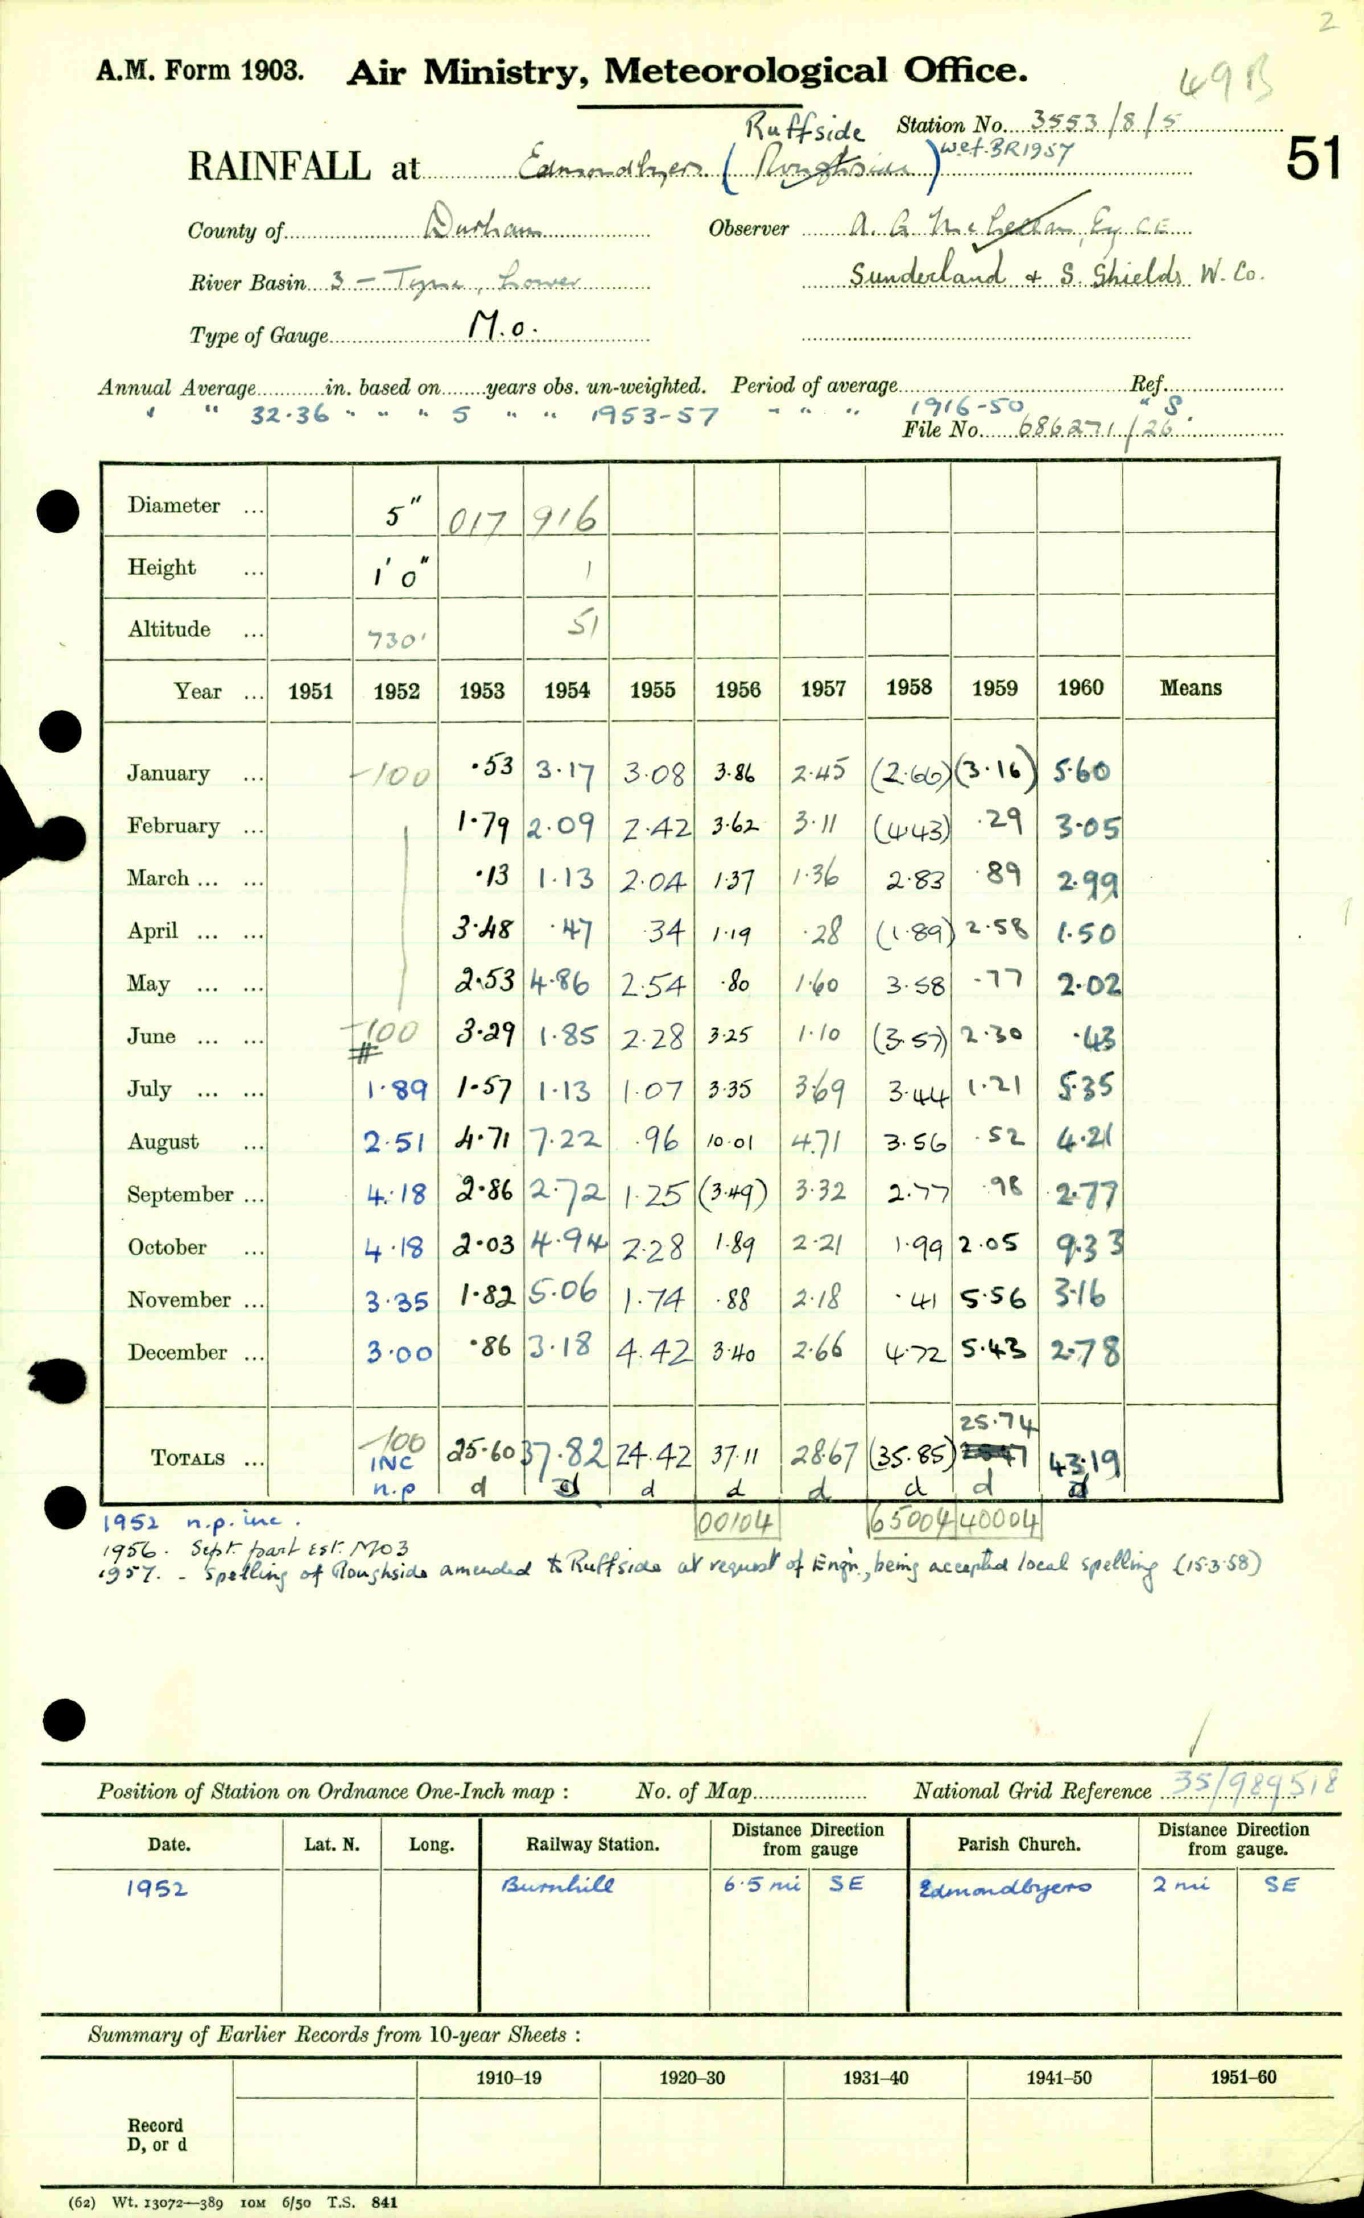 2
A.M. Form 1903. Air Ministry, Meteorological Office.
49B
Ruffside Station No. 3553/8/5
RAINFALL at Edmondbyers (Roughside) w.e.f. BR1957
51
County of Durham Observer A. G. McLellan, Esq CE
River Basin 3 - Tyne, Lower Sunderland & S. Shields W. Co.
Type of Gauge M.O.
Annual Average in. based on years obs. un-weighted. Period of average Ref.
" " 32.36 " " " 5 " " 1953-57 " " " 1916-50 " S.
File No. 686271/26
Diameter ... 5" 017 916
Height ... 1' 0" 1
Altitude ... 730' 51
Year ... 1951 1952 1953 1954 1955 1956 1957 1958 1959 1960 Means
January ... -100 .53 3.17 3.08 3.86 2.45 (2.66) (3.16) 5.60
February ... 1.79 2.09 2.42 3.62 3.11 (4.43) .29 3.05
March ... ... .13 1.13 2.04 1.37 1.36 2.83 .89 2.99
April ... ... 3.48 .47 .34 1.19 .28 (1.89) 2.58 1.50
May ... ... 2.53 4.86 2.54 .80 1.60 3.58 .77 2.02
June ... ... -100 3.29 1.85 2.28 3.25 1.10 (3.57) 2.30 .43
#
July ... ... 1.89 1.57 1.13 1.07 3.35 3.69 3.44 1.21 5.35
August ... 2.51 4.71 7.22 .96 10.01 4.71 3.56 .52 4.21
September ... 4.18 2.86 2.72 1.25 (3.49) 3.32 2.77 .98 2.77
October ... 4.18 2.03 4.94 2.28 1.89 2.21 1.99 2.05 9.33
November ... 3.35 1.82 5.06 1.74 .88 2.18 .41 5.56 3.16
December ... 3.00 .86 3.18 4.42 3.40 2.66 4.72 5.43 2.78
25.74
TOTALS ... -100 25.60 37.82 24.42 37.11 28.67 (35.85) 43.19
INC
n.p d d d d d d d d
00104 65004 40004
1952 n.p. inc.
1956. Sept. part Est. MO3
1957. - Spelling of Roughside amended to Ruffside at request of Engr., being accepted local spelling (15.3.58)
Position of Station on Ordnance One-Inch map : No. of Map National Grid Reference 35/989518
Date. Lat. N. Long. Railway Station. Distance from Direction gauge Parish Church. Distance from Direction gauge.
1952 Burnhill 6.5 mi SE Edmondbyers 2 mi SE
Summary of Earlier Records from 10-year Sheets :
1910–19 1920–30 1931–40 1941–50 1951–60
Record
D, or d
(62) Wt. 13072—389 10M 6/50 T.S. 841